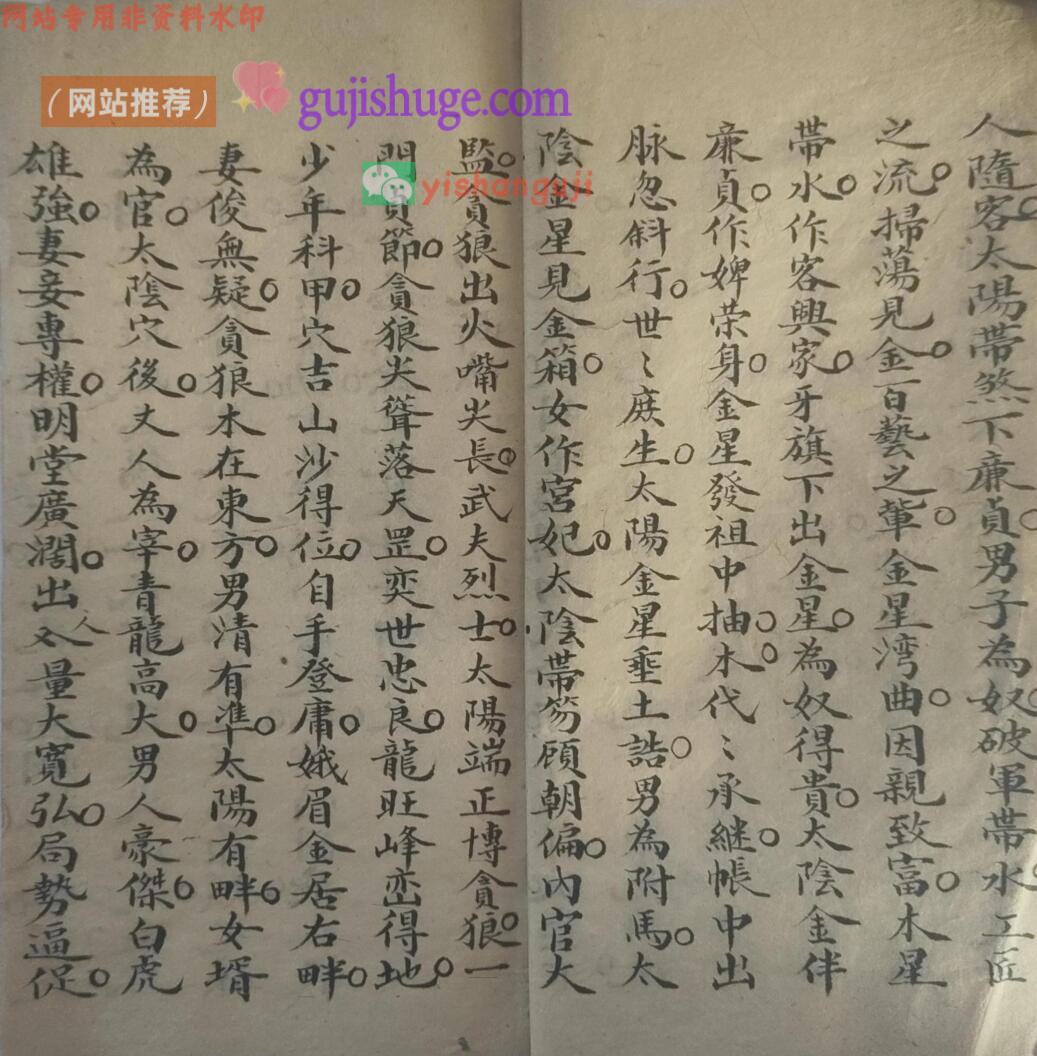 网站专用非资料水印
（网站推荐）
gujishuge.com
yishanguji
人隨客太陽帶煞下廉貞男子為奴破軍帶水工匠
之流掃蕩見金百藝之輩金星湾曲因親致富木星
帶水作客興家牙旗下出金星為奴得貴太陰金伴
廉貞作婢荣身金星發祖中抽木代〻承継帳中出
脉忽斜行世〻庶生太陽金星垂土誥男為附馬太
陰金星見金箱女作宮妃太陰帶笏顧朝偏內官太
監貪狼出火嘴尖長武夫烈士太陽端正博貪狼一
門貞節貪狼尖聳落天罡奕世忠良龍旺峰峦得地
少年科甲穴吉山沙得位自手登庸娥眉金居右畔
妻俊無疑貪狼木在東方男清有準太陽有畔女壻
為官太陰穴後丈人為宰青龍高大男人豪傑白虎
雄強妻妾專權明堂廣濶出人量大寬弘局勢逼促